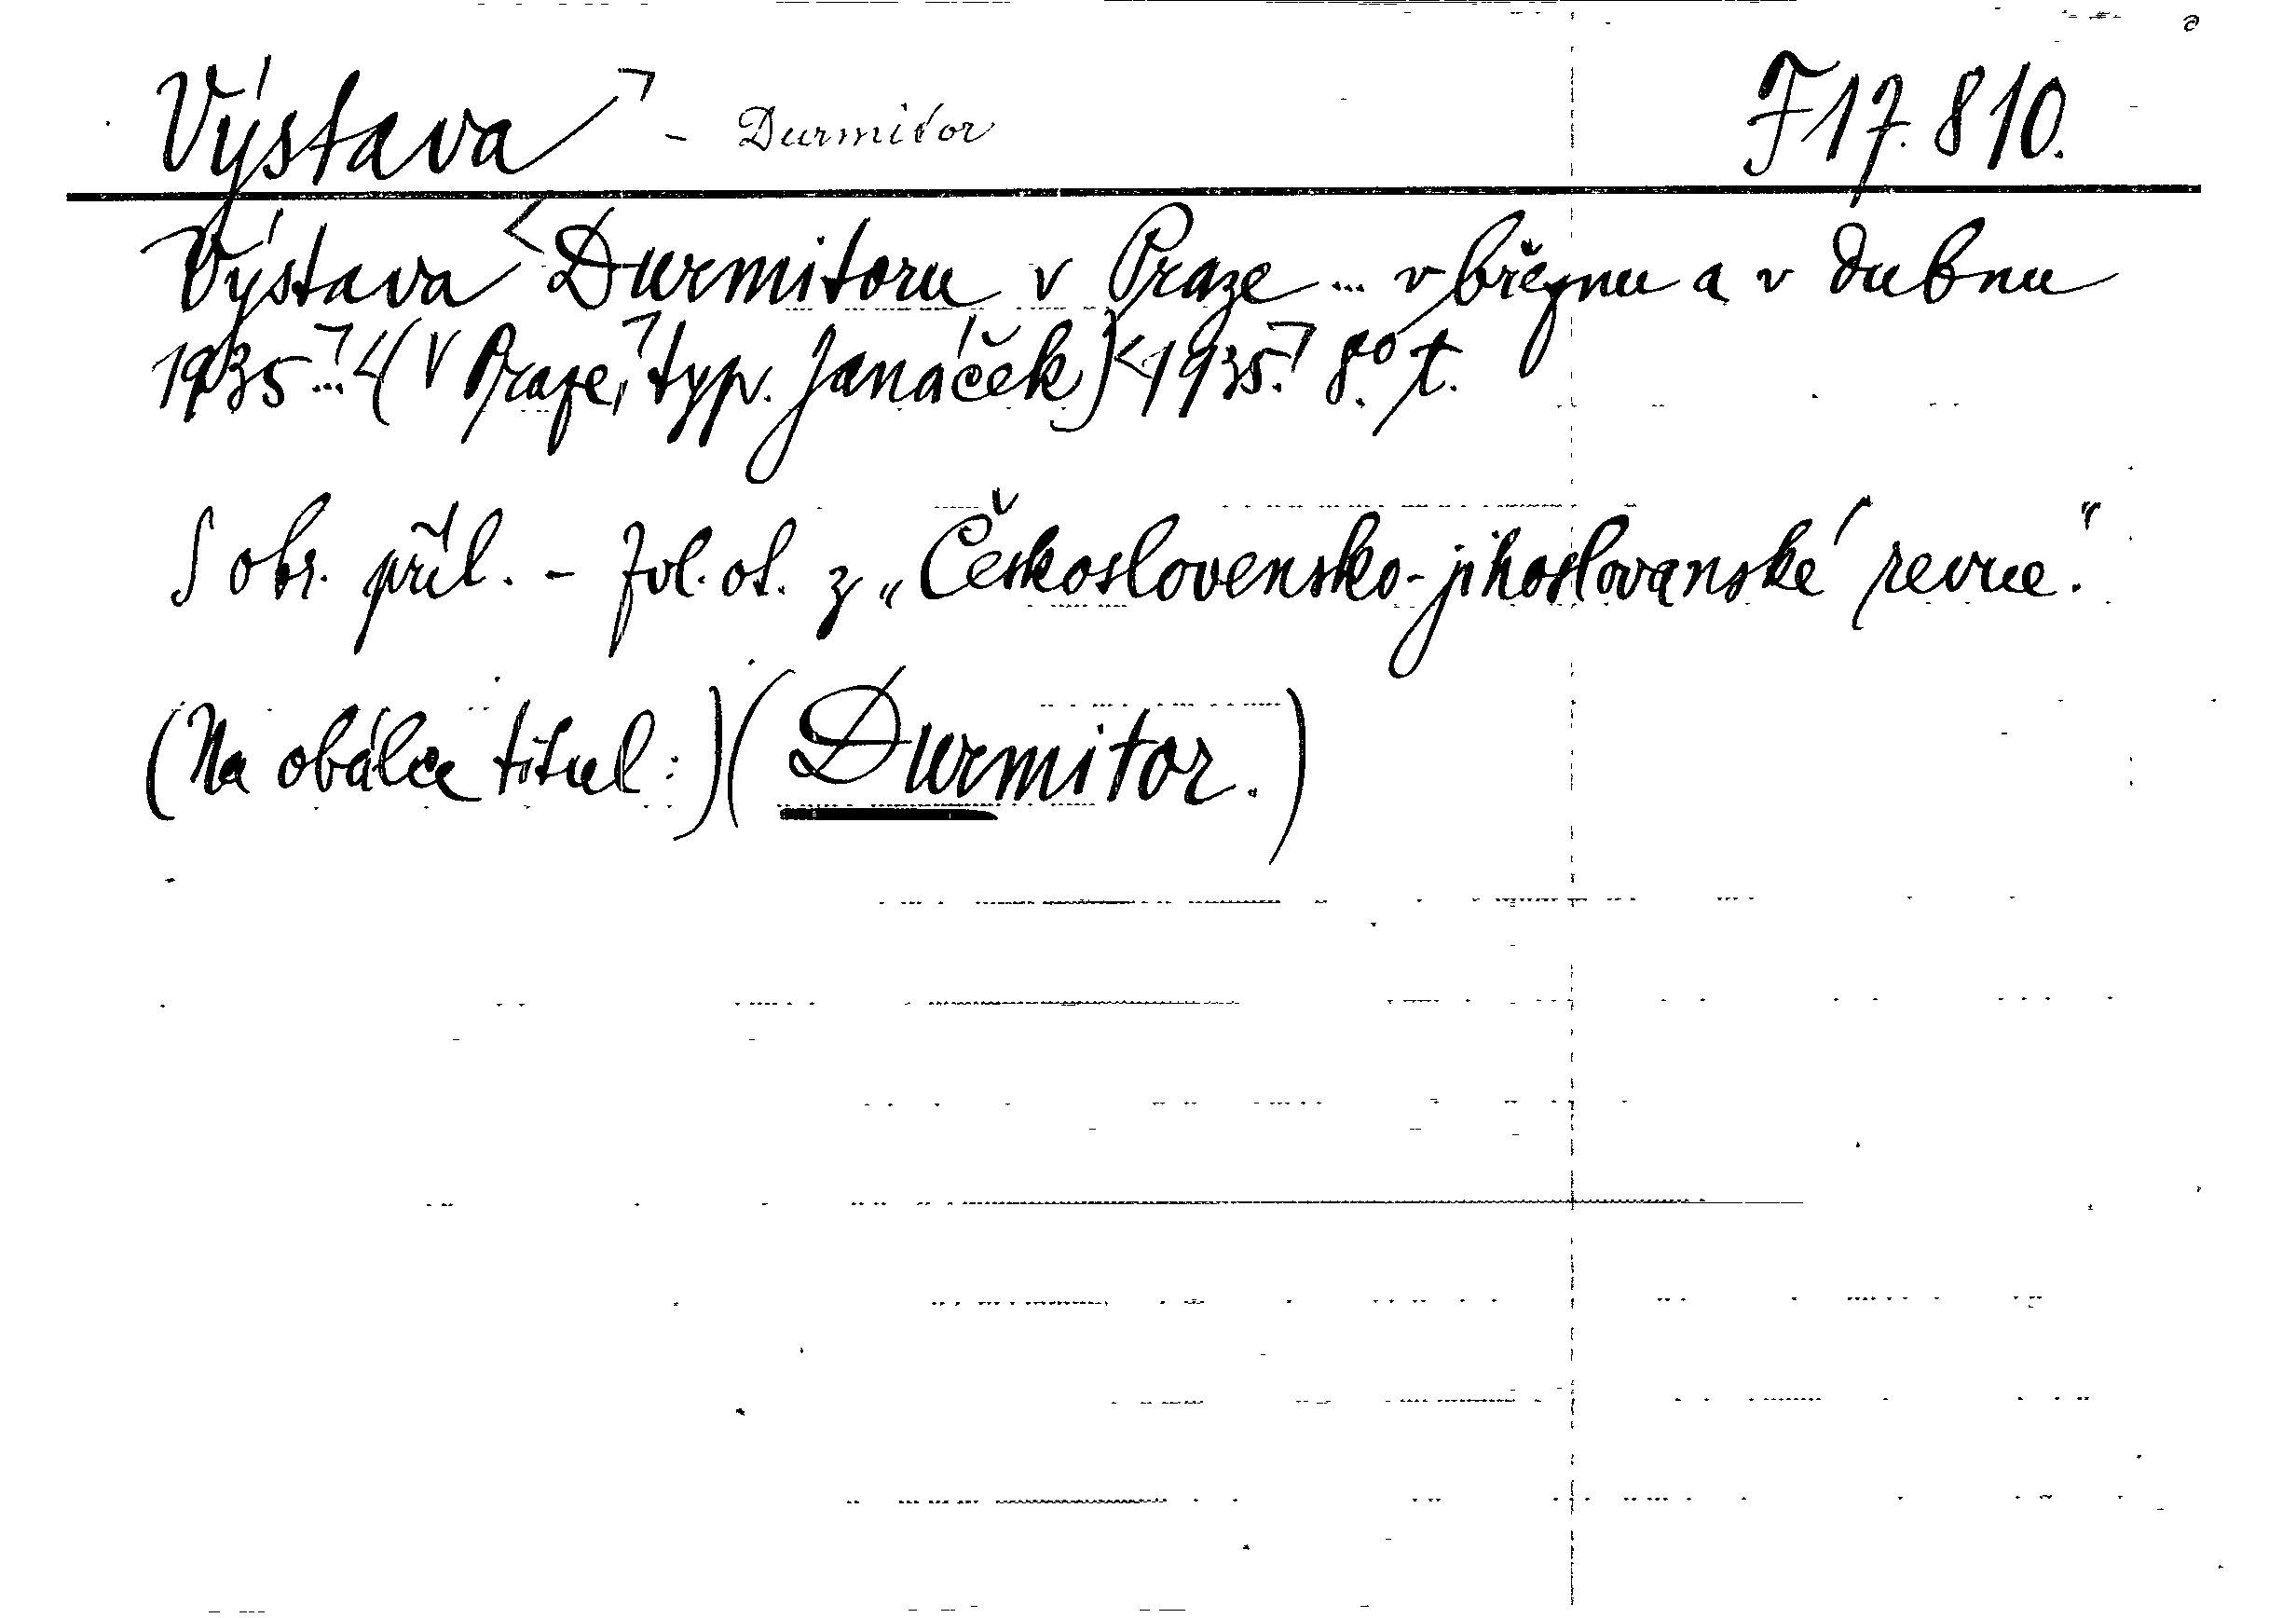 Výstava - Durmitor F 17.810.
Výstava Durmitoru v Praze ... v březnu a v dubnu
1935 ... (V Praze, typ. Janáček) 1935. 8° t.
S obr. příl. - Zvl. ot. z „Československo-jihoslovanské revue."
(Na obálce titul:) (Durmitor.)